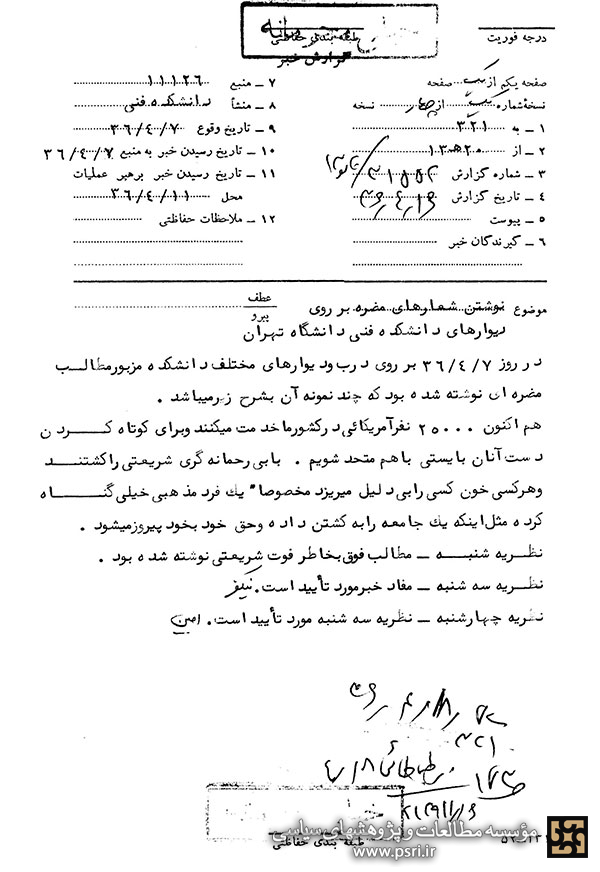 درجه فوریت
طبقه بندی حفاظتی
گزارش خبر
صفحه یکم از یک صفحه
نسخهٔ شماره یک از چهار نسخه
۱ - به ۳۲۱
۲ - از ۲۰ﻫ۱۳
۳ - شماره گزارش
۴ - تاریخ گزارش
۵ - پیوست
۶ - گیرندگان خبر
۷ - منبع ۱۱۱۲۶
۸ - منشأ دانشکده فنی
۹ - تاریخ وقوع ۳۶/۴/۷
۱۰ - تاریخ رسیدن خبر به منبع ۳۶/۴/۷
۱۱ - تاریخ رسیدن خبر برهبر عملیات
محل ۳۶/۴/۱۱
۱۲ - ملاحظات حفاظتی
موضوع نوشتن شعارهای مضره بر روی
دیوارهای دانشکده فنی دانشگاه تهران
عطف
پیرو
در روز ۳۶/۴/۷ بر روی درب و دیوارهای مختلف دانشکده مزبور مطالب
مضره ای نوشته شده بود که چند نمونه آن بشرح زیر میباشد .
هم اکنون ۲۵۰۰۰ نفر آمریکائی در کشور ما خدمت میکنند و برای کوتاه کردن
دست آنان بایستی با هم متحد شویم . با بی رحمانه گری شریعتی را کشتند
و هر کسی خون کسی را بی دلیل میریزد مخصوصا" یك فرد مذهبی خیلی گناه
کرده مثل اینکه یك جامعه را به کشتن داده و حق خود بخود پیروز میشود .
نظریه شنبه - مطالب فوق بخاطر فوت شریعتی نوشته شده بود .
نظریه سه شنبه - مفاد خبر مورد تأیید است . نیکفر
نظریه چهارشنبه - نظریه سه شنبه مورد تأیید است . امین
۳۲۱
طبقه بندی حفاظتی
مؤسسه مطالعات و پژوهشهای سیاسی
www.psri.ir